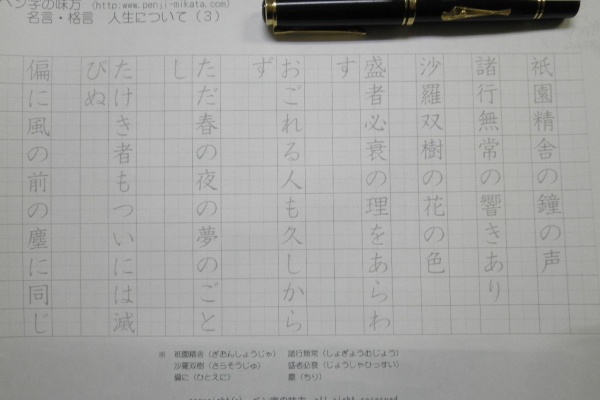 ペン字の味方 (http:www.penji-mikata.com)
名言・格言　人生について（３）
祇園精舎の鐘の声
諸行無常の響きあり
沙羅双樹の花の色
盛者必衰の理をあらわ
す
おごれる人も久しから
ず
ただ春の夜の夢のごと
し
たけき者もついには滅
びぬ
偏に風の前の塵に同じ
※　祇園精舎（ぎおんしょうじゃ）　諸行無常（しょぎょうむじょう）
沙羅双樹（さらそうじゅ）　盛者必衰（じょうしゃひっすい）
偏に（ひとえに）　塵（ちり）
copyright(c) ペン字の味方 all right reserved